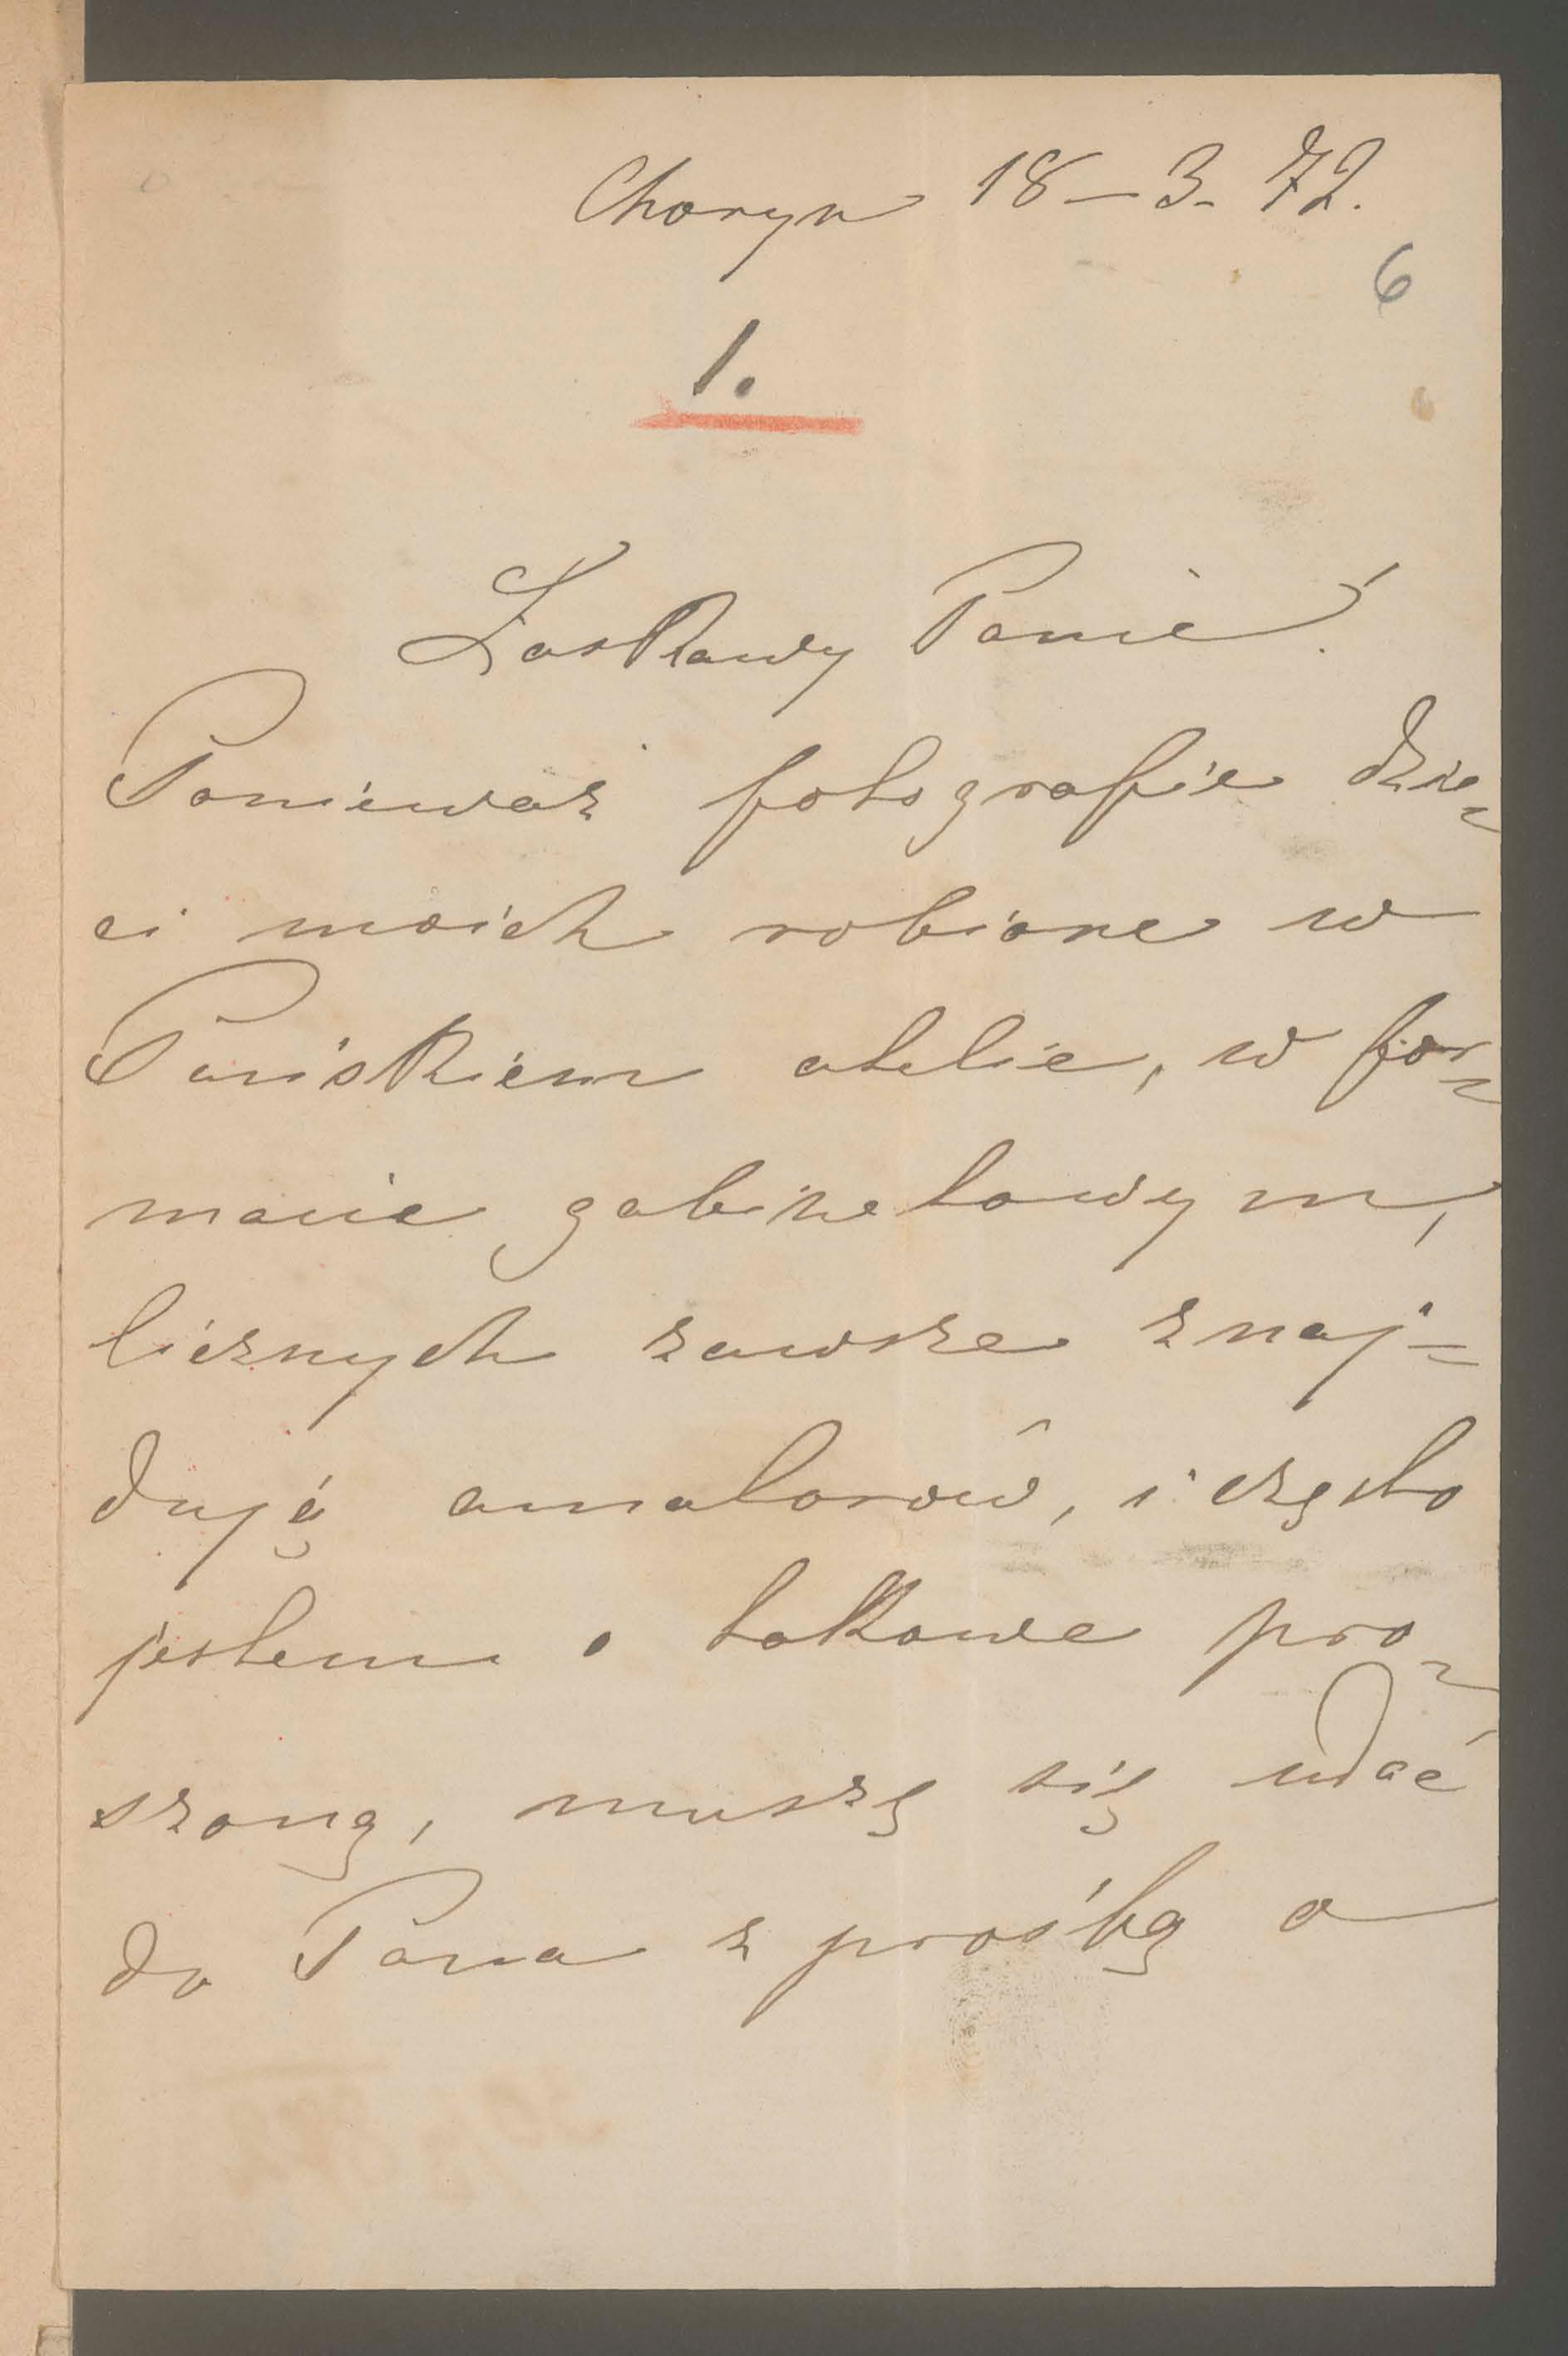 Choryn 18–3–72.
6
1.
Łaskawy Panie!
Ponieważ fotografie dzie=
ci moich robione w
Pańskiem atelie, w for=
macie gabinetowym,
licznych zawsze znaj=
dują amatorów, i często
jestem o takowe pro=
szoną, muszę się udać
do Pana z prośbą o